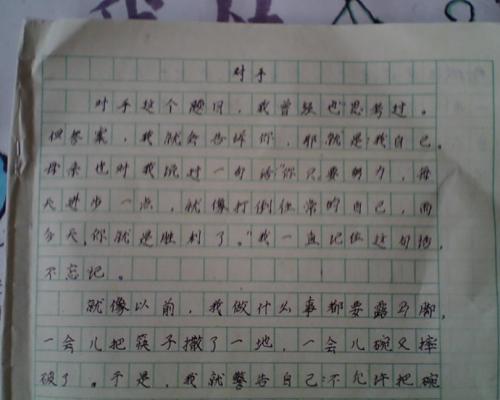 对手
对手这个题目，我曾经也思考过。
但答案，我就会告诉你，那就是：我自己。
母亲也对我说过一句话“你只要努力，每
天进步一点，就像打倒住常的自己，而
今天，你就是胜利了。”我一直记住这句话，
不忘记。
就像以前，我做什么事都要露马脚，
一会儿把筷子撒了一地，一会儿碗又摔
破了。于是，我就警告自己：不允许把碗